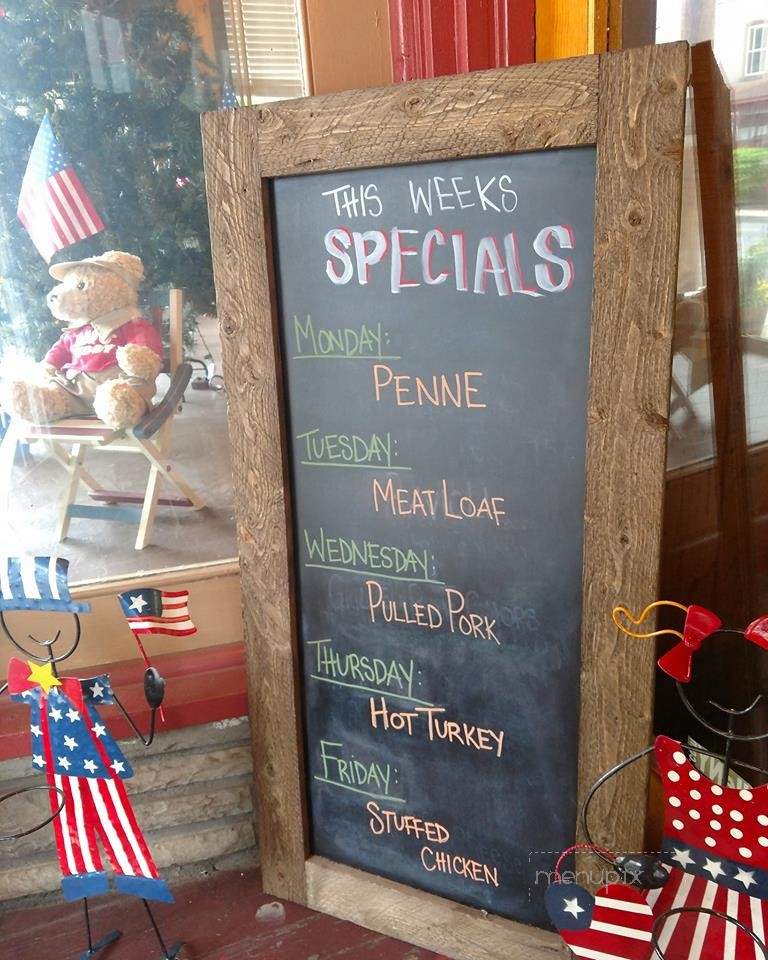 THIS WEEKS
SPECIALS
MONDAY:
PENNE
TUESDAY:
MEAT LOAF
WEDNESDAY:
PULLED PORK
THURSDAY:
HOT TURKEY
FRIDAY:
STUFFED
CHICKEN
menupix